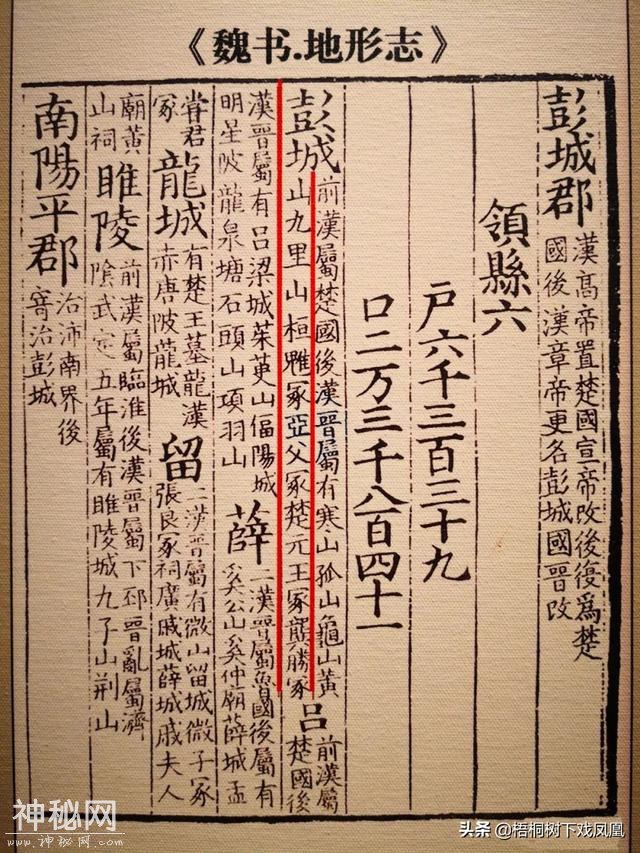 《魏书.地形志》
彭城郡
漢髙帝置楚國宣帝改後復爲楚
國後漢章帝更名彭城國晉改
領縣六
戸六千三百三十九
口二万三千八百四十一
彭城
前漢屬楚國後漢晉屬有寒山孤山龜山黃
山九里山桓魋冢亞父冢楚元王冢龔勝冢
呂
前漢屬
楚國後
漢晉屬有呂梁城茱萸山偪陽城
明星陂龍泉塘石頭山項羽山
薛
二漢晉屬魯國後屬有
奚公山奚仲廟薛城孟
甞君
冢
龍城
有楚王墓龍漢
赤唐陂龍城
留
二漢晉屬有微山留城微子冢
張良冢祠廣戚城薛城戚夫人
廟黃
山祠
睢陵
前漢屬臨淮後漢晉屬下邳晉亂屬濟
陰武定五年屬有睢陵城九子山荆山
南陽平郡
治沛南界後
寄治彭城
神秘网
www.神秘网.com
头条 @梧桐树下戏凤凰